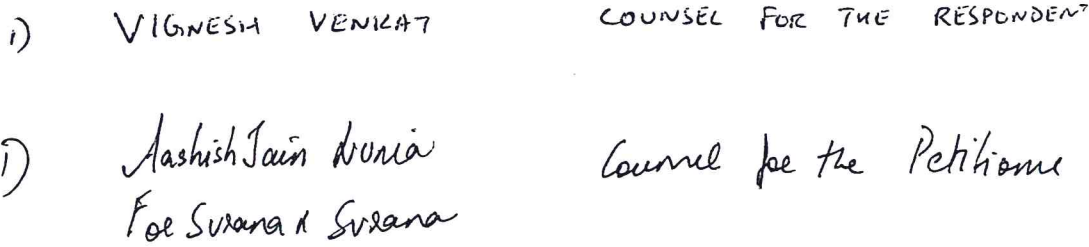 1) VIGNESH VENKAT COUNSEL FOR THE RESPONDENT
1) Aashish Jain Lunia Counsel for the Petitioner
For Surana & Surana